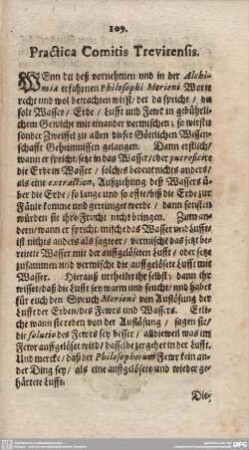 109.
Practica Comitis Trevirensis.
WEnn du deß vornehmen und in der Alchi-
mia erfahrnen Philosophi Morieni Worte
recht und wol betrachten wirst/ der da spricht/ du
solt Wasser/ Erde/ Lufft und Fewr in gebührli-
chem Gewichte mit einander vermischen/ so wirstu
sonder Zweiffel zu allen dieser Göttlichen Wissen-
schafft Geheimnissen gelangen. Dann erstlich/
wann er spricht/ setze in das Wasser/ oder putreficire
die Erde in Wasser/ solches bedeut nichts anders/
als eine extraction, Außziehung deß Wassers ü-
ber die Erde/ so lange und so offte/ biß die Erde zur
Fäule komme und gereiniget werde/ dann sonsten
würden sie ihre Frocht nicht bringen. Zum an-
dern/ wann er spricht/ mische das Wasser und Lufft/
ist nichts anders als sagte er/ vermische das jetzt be-
reitete Wasser mit der auffgelöseten Lufft/ oder setze
zusammen und vermische die auffgelösete Lufft mit
Wasser. Hierauß urtheilet ihr selbst/ dann ihr
wisset/ daß die Lufft sey warm und feuchte/ und habet
für euch den Spruch Morieni von Aufflösung der
Lufft/ der Erden/ des Fewrs und Wassers. Etli-
che wann sie reden von der Aufflösung/ sagen sie/
die solutio des Fewrs sey besser/ alldieweil was im
Fewr auffgelöset wird/ dasselbe zergehet in der Lufft.
Und mercke/ daß der Philosophorum Fewr kein an-
der Ding sey/ als eine auffgelösete und wieder ge-
härtete Lufft.
Die-